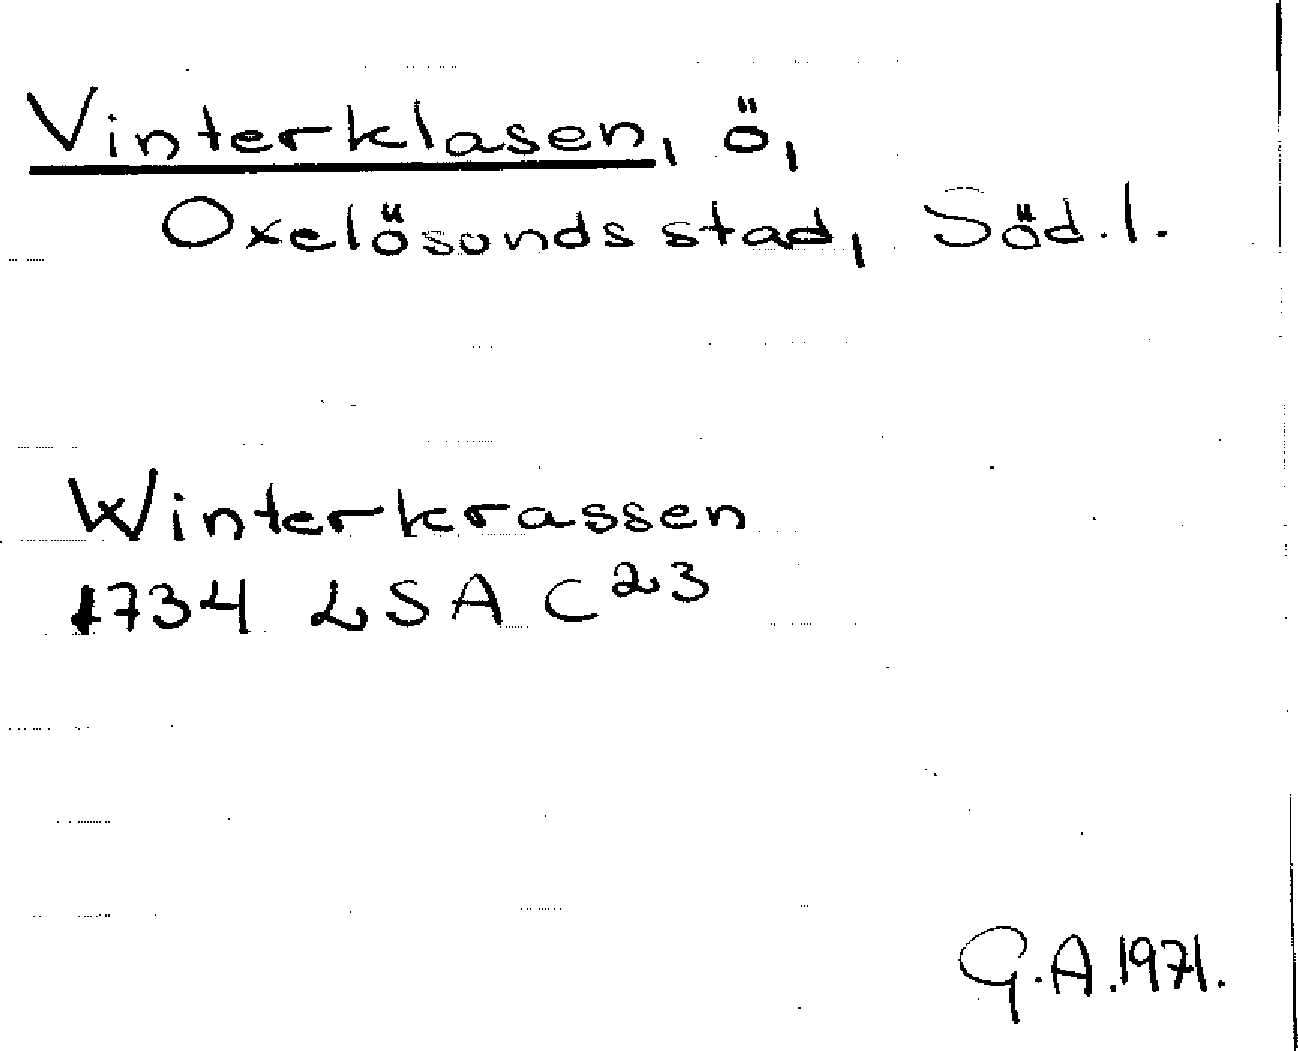 Vinterklasen, ö,
Oxelösunds stad, Söd. l.
Winterkrassen
1734 LSA C 23
G.A. 1971.